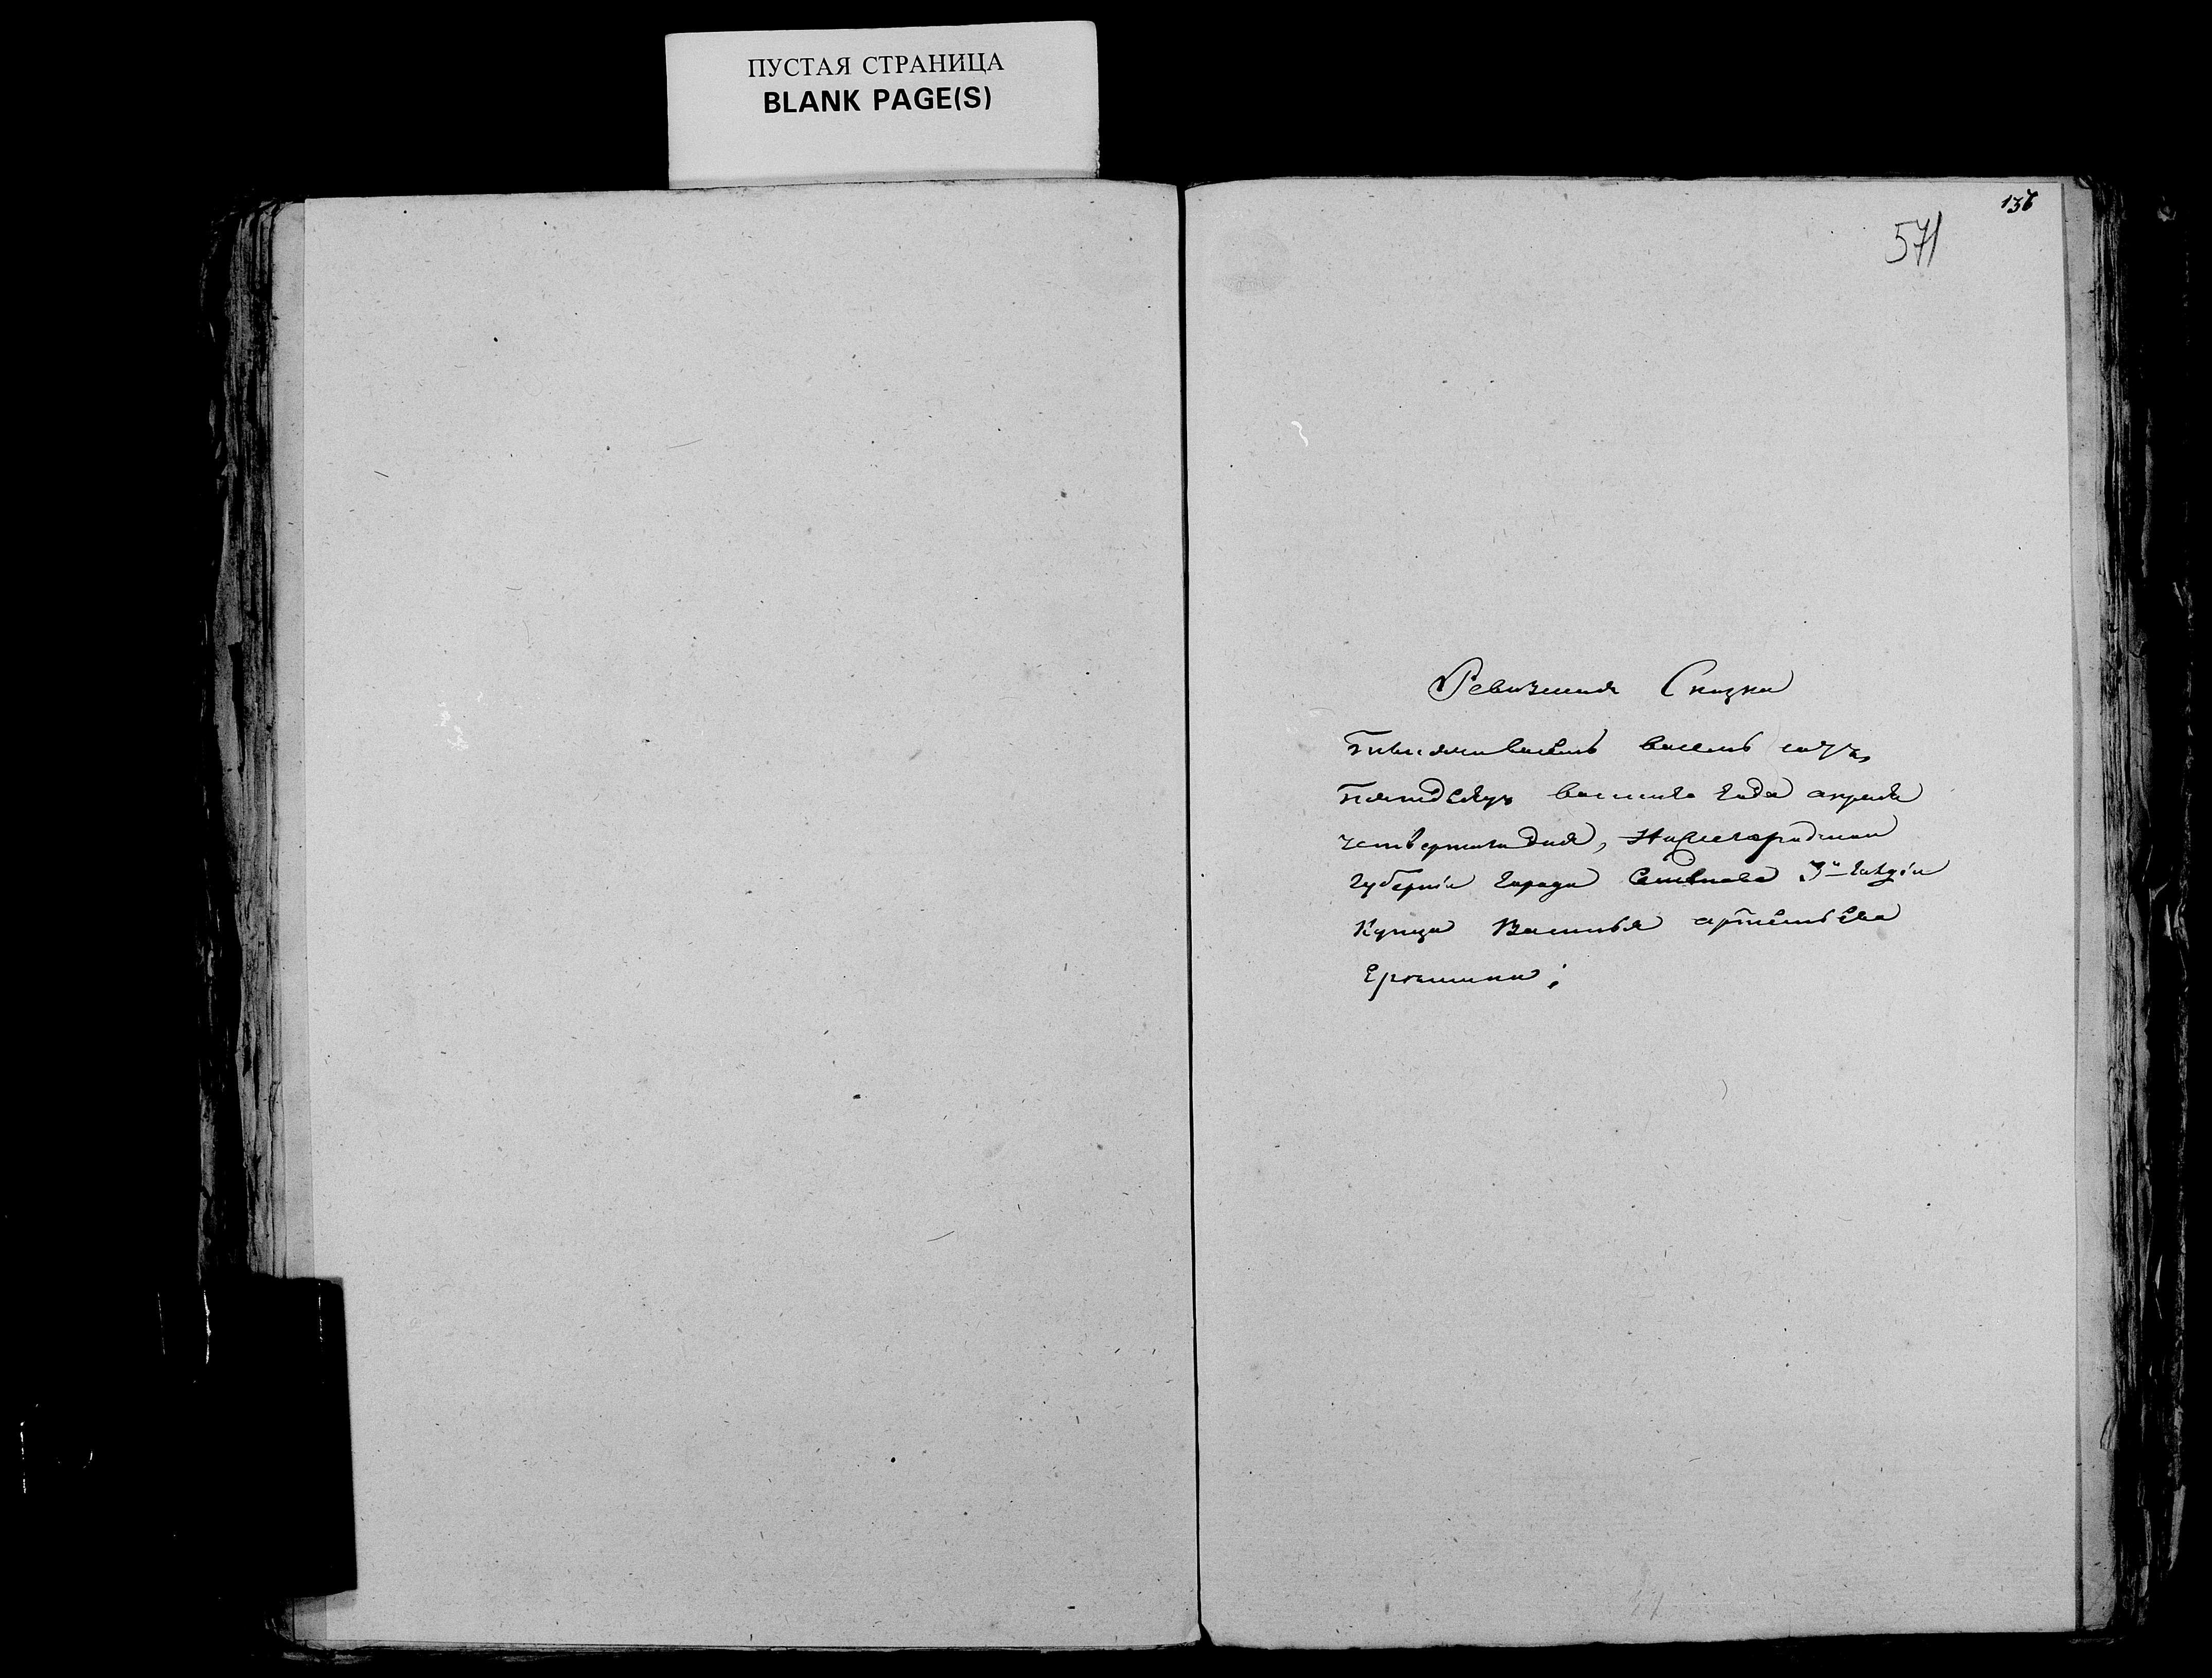 ПУСТАЯ СТРАНИЦА
BLANK PAGE(S)
136
571
Ревизская Сказка
Тысяча восемь сотъ
пятдесятъ восмаго года апреля
четвертаго дня, Нижегородской
Губерніи города Семенова 3й гильдіи
Купца Василья артемьева
Ерошина;